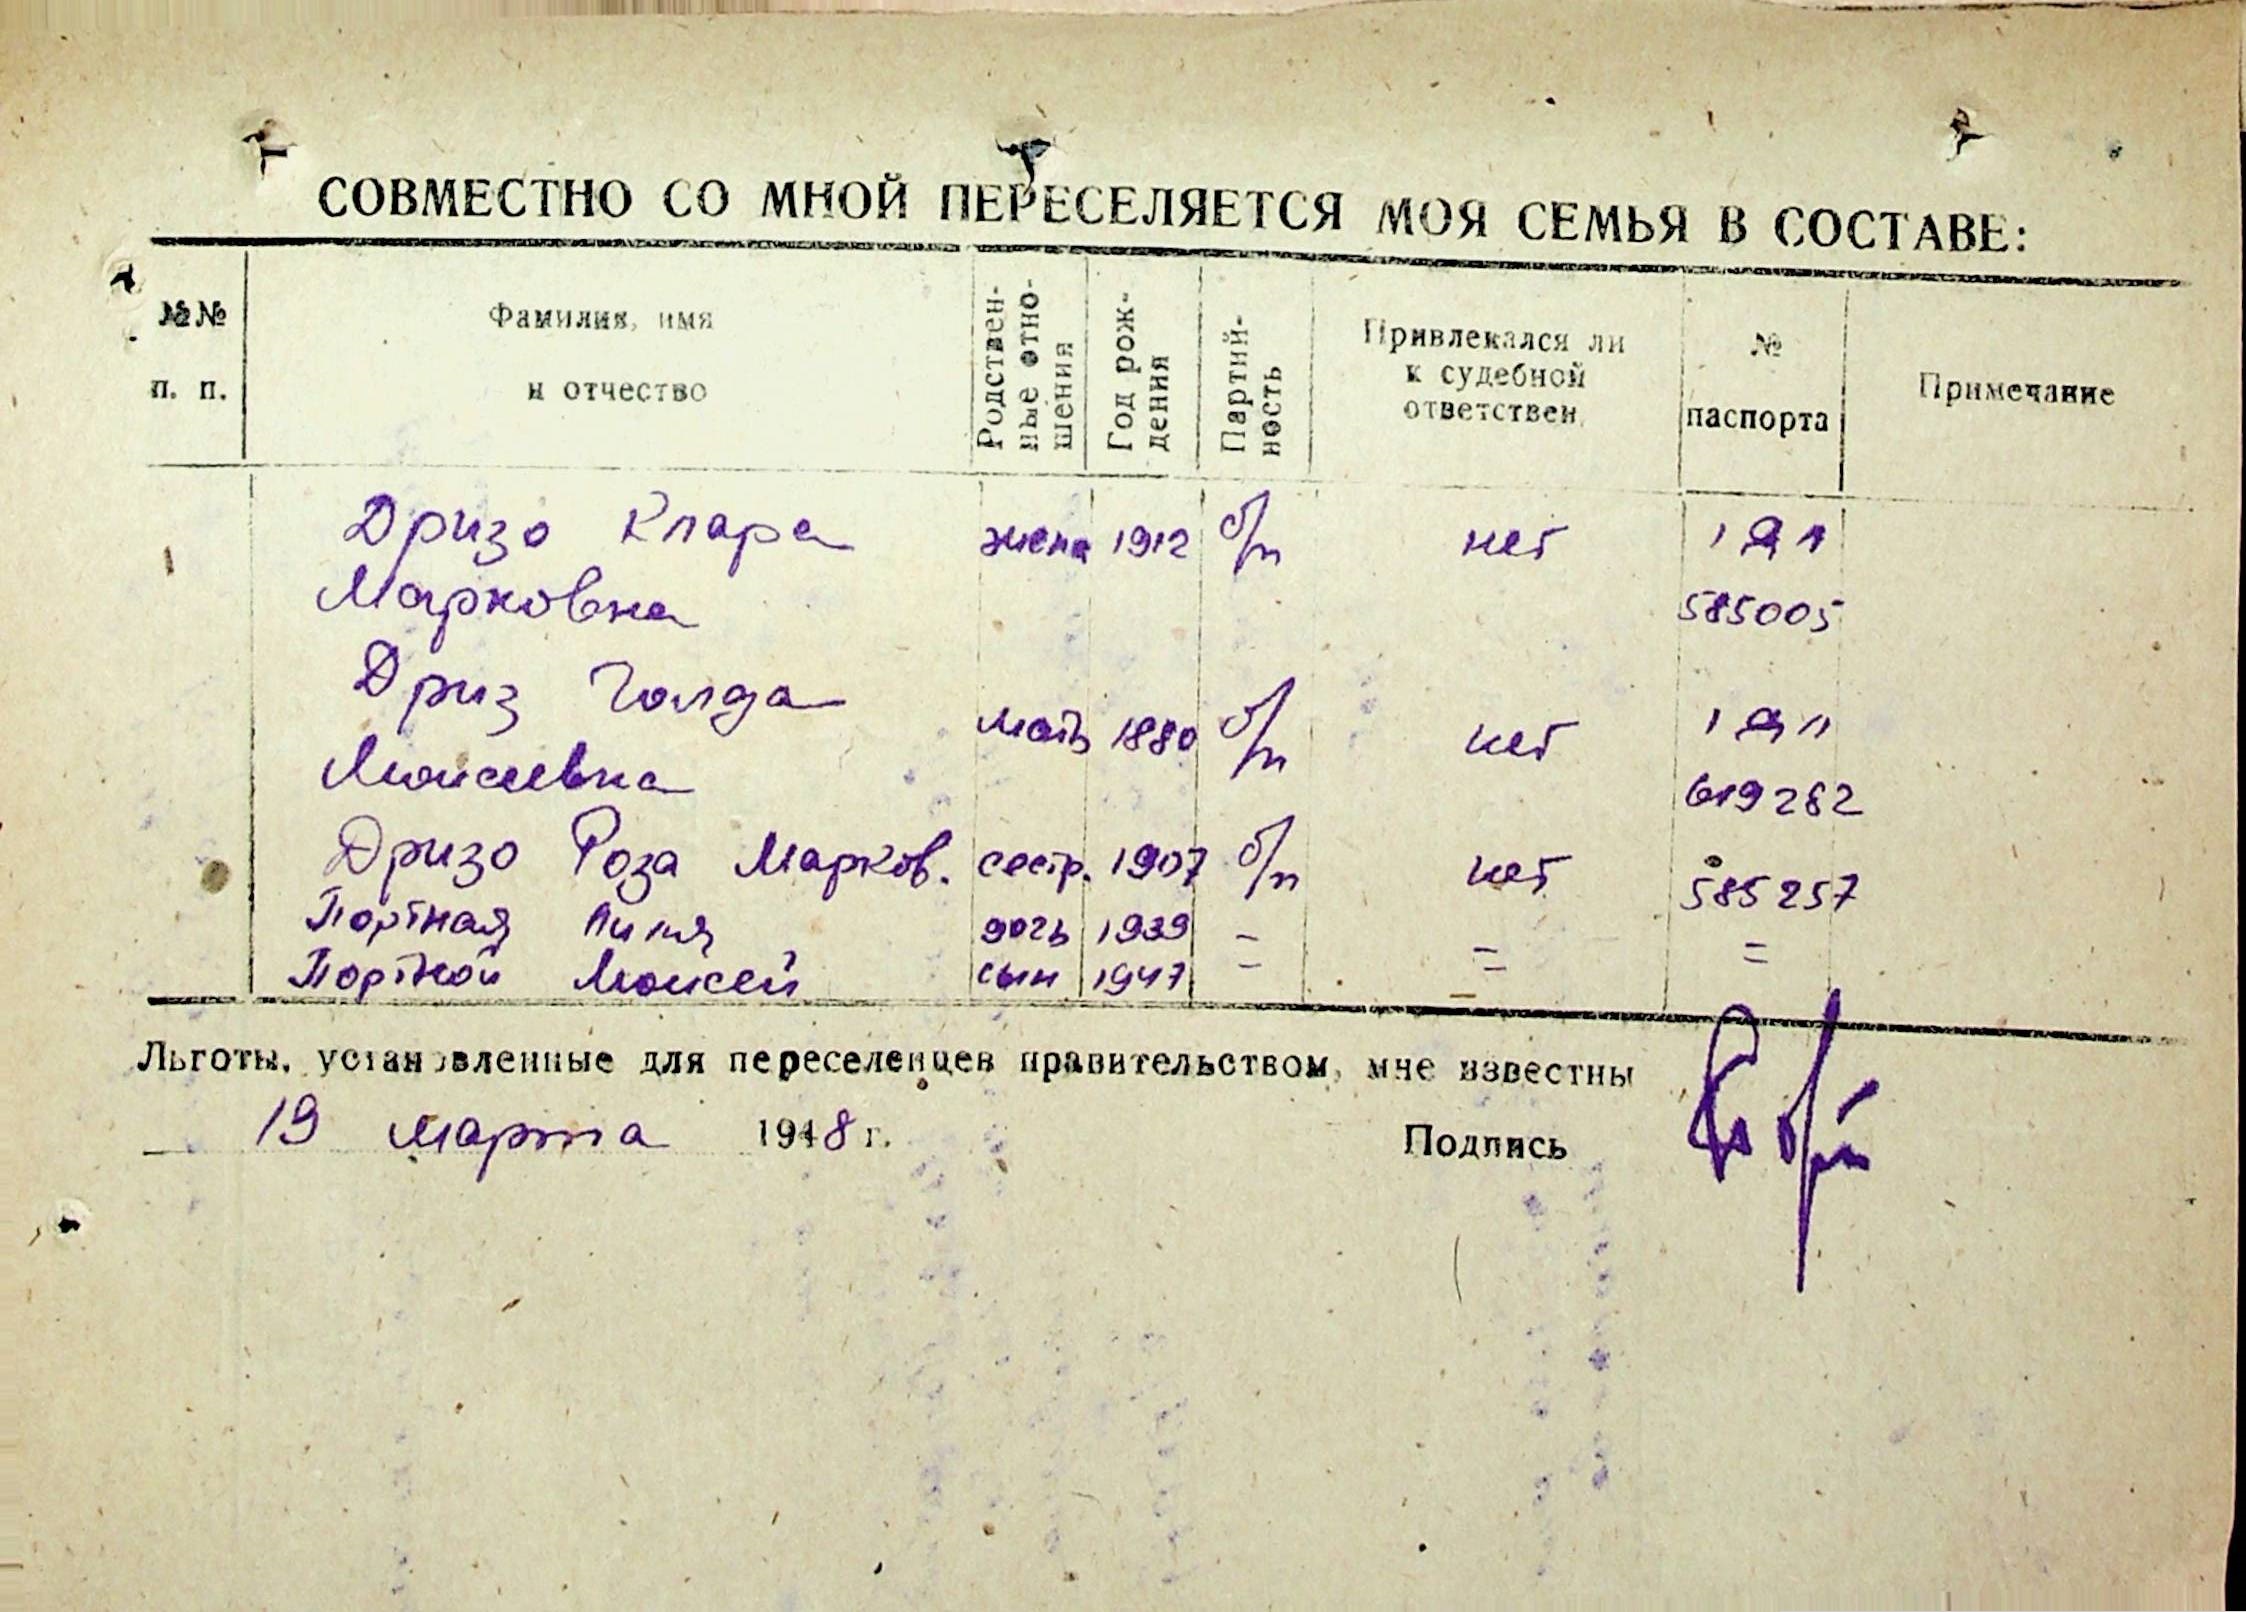 СОВМЕСТНО СО МНОЙ ПЕРЕСЕЛЯЕТСЯ МОЯ СЕМЬЯ В СОСТАВЕ:
№№ п. п.
Фамилия, имя и отчество
Родствен-ные отно-шения
Год рож-дения
Партий-ность
Привлекался ли к судебной ответствен.
№ паспорта
Примечание
Дризо Клара жена 1912 б/п нет
Марковна 585005
Дриз Голда
мать 1880 б/п нет
Моисеевна 619282
Дризо Роза Марков. сестр. 1907 б/п нет 585257
Портная Лиля дочь 1939 – = =
Портной Моисей сын 1947 –
Льготы, установленные для переселенцев правительством, мне известны
19 марта 1948 г.
Подпись